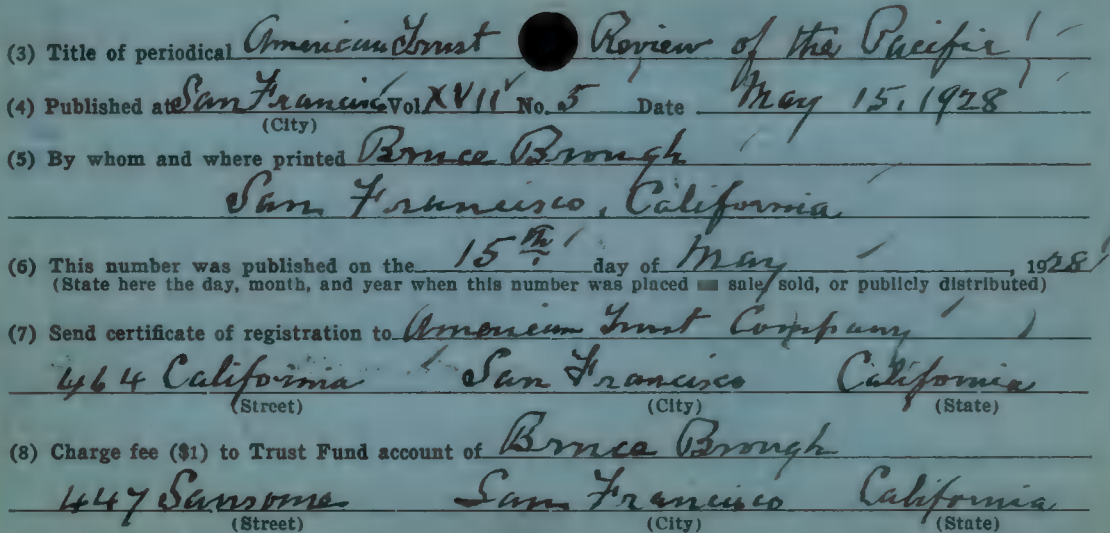 (3) Title of periodical American Trust Review of the Pacific
(4) Published at San Francisco Vol XVII No. 5 Date May 15, 1928
(City)
(5) By whom and where printed Bruce Brough
San Francisco, California
(6) This number was published on the 15th day of May, 1928
(State here the day, month, and year when this number was placed sale, sold, or publicly distributed)
(7) Send certificate of registration to American Trust Company
464 California San Francisco California
(Street) (City) (State)
(8) Charge fee ($1) to Trust Fund account of Bruce Brough
447 Sansome San Francisco California
(Street) (City) (State)